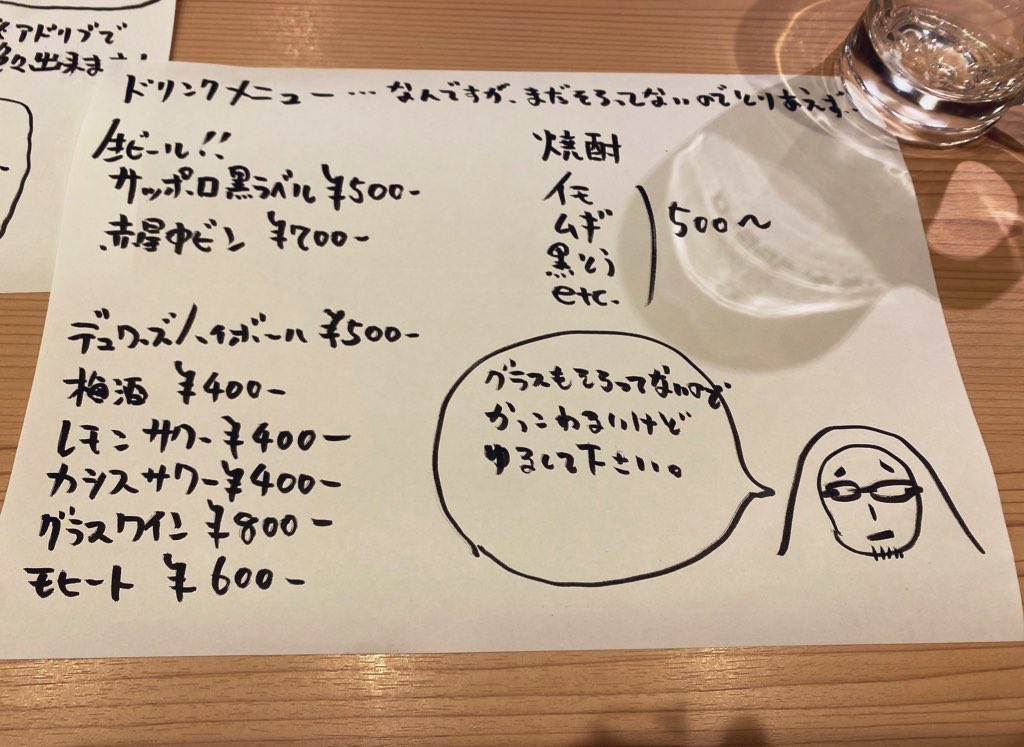 ※アドリブで
色々出来ます!
ドリンクメニュー…なんですが、まだそろってないのでとりあえず…
生ビール!!
サッポロ黒ラベル ¥500-
赤星中ビン ¥700-
デュワーズハイボール ¥500-
梅酒 ¥400-
レモンサワー ¥400-
カシスサワー ¥400-
グラスワイン ¥800-
モヒート ¥600-
焼酎
イモ
ムギ
黒とう
etc.
500〜
グラスもそろってないので
かっこわるいけど
ゆるして下さい。